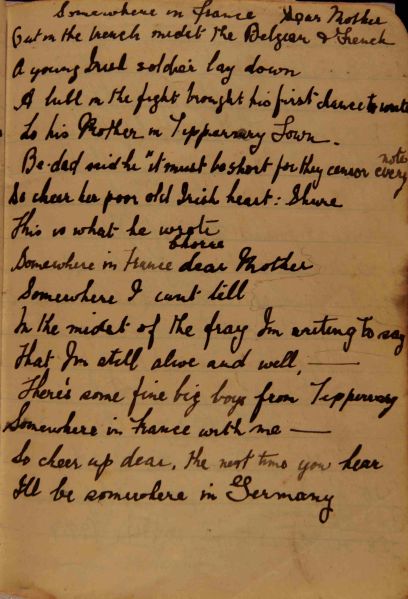 Somewhere in france Dear Mother
Out in the trench midst the Belgian & French
A young Irish soldier lay down
A lull in the fight brought his first chance to write
To his Mother in Tipperary Town.
Be-dad said he "it must be short for they censor every note
To cheer her poor old Irish heart: Shure
This is what he wrote
Chorus
Somewhere in France dear Mother
Somewhere I cant tell
In the midst of the fray Im writing to say
That Im still alive and well, —
There's some fine big boys from Tipperary
Somewhere in France with me —
So cheer up dear, the next time you hear
I'll be somewhere in Germany